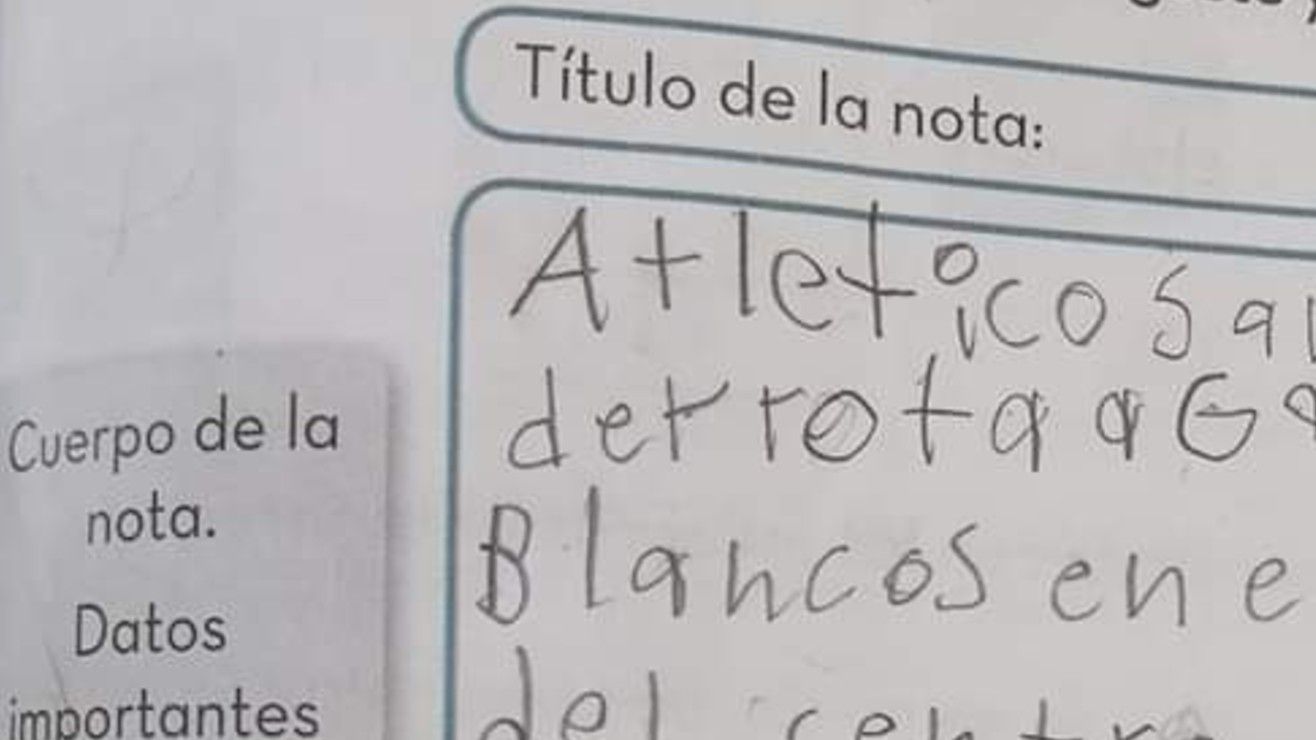 Título de la nota:
Atletico Sa
derrota a G
Blancos en e
del centr
Cuerpo de la
nota.
Datos
importantes